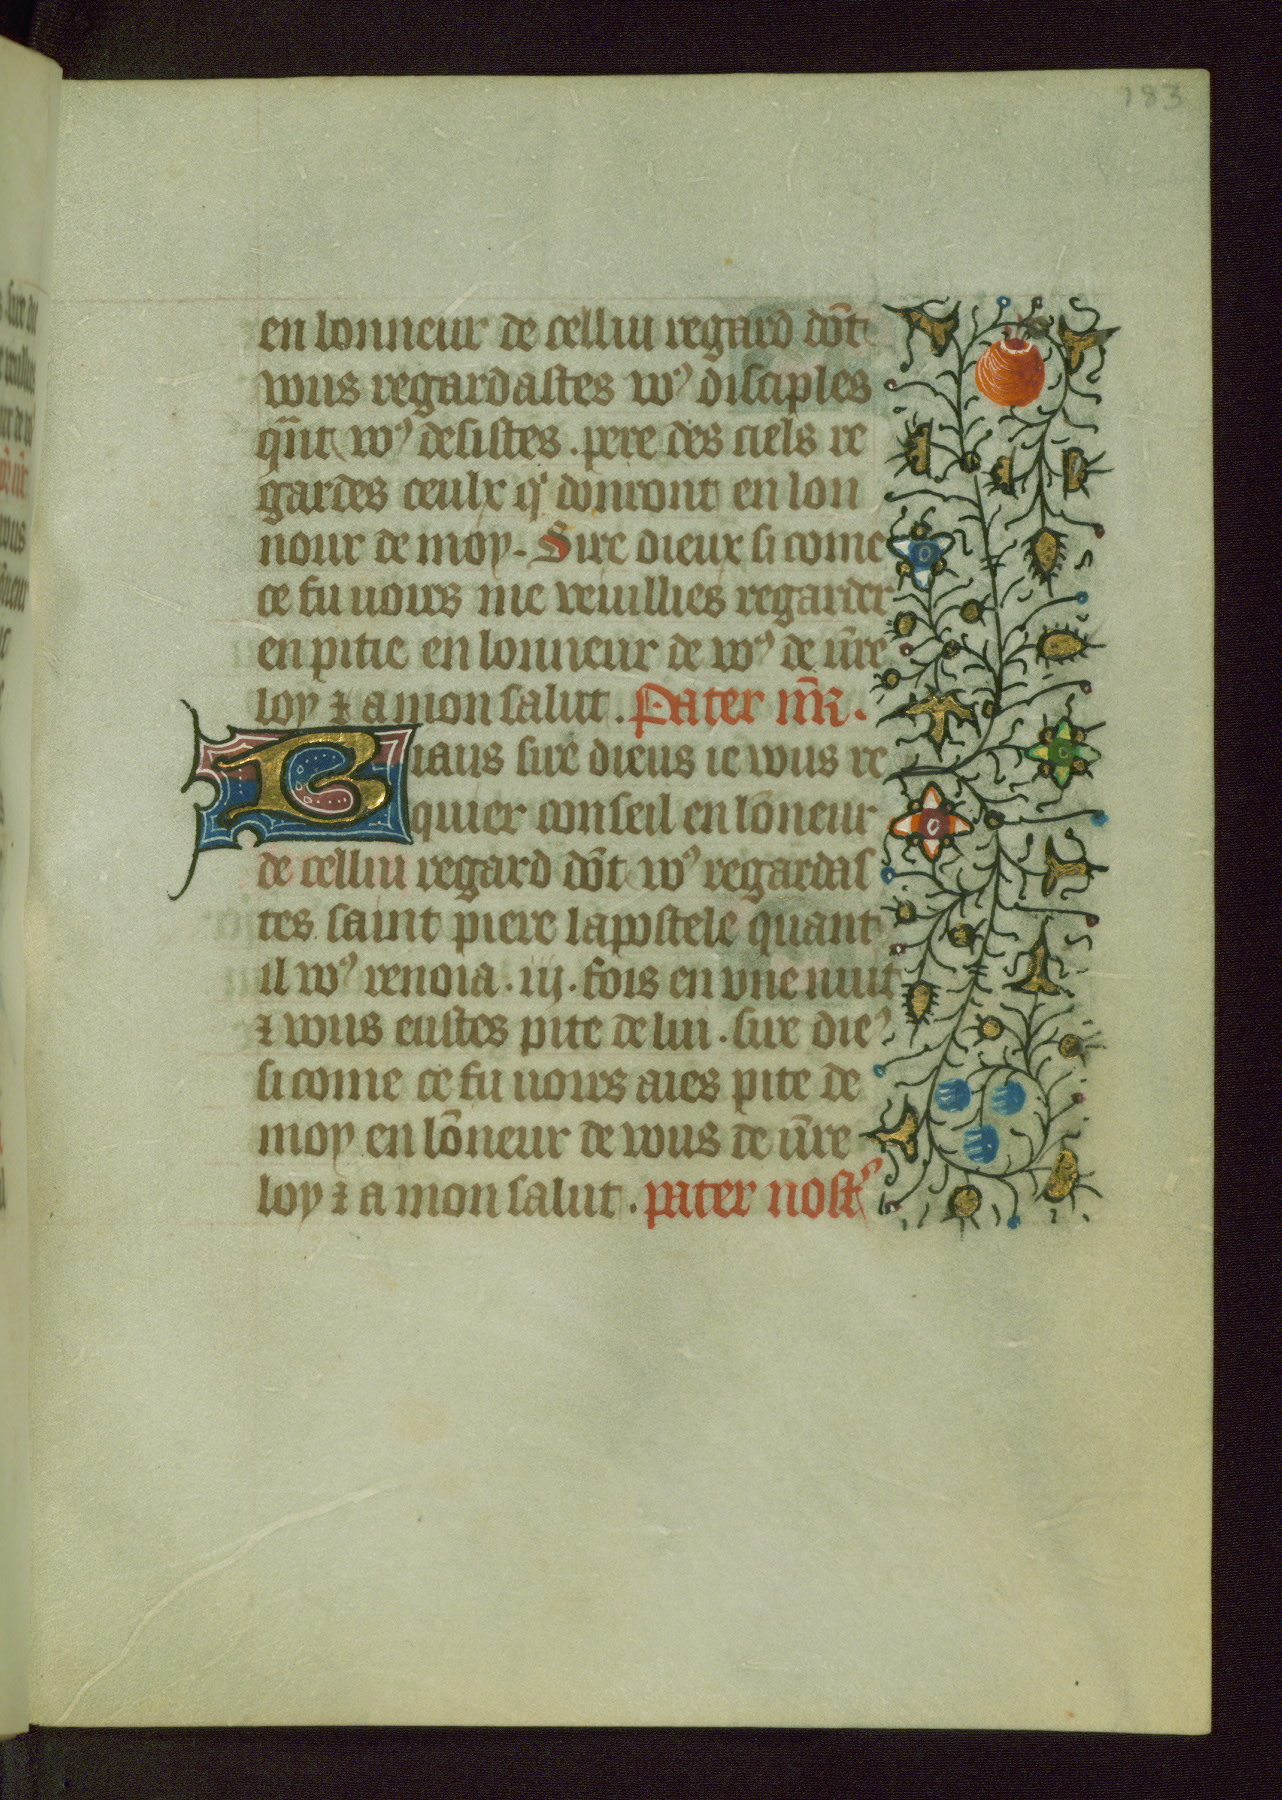 183
en lonneur de cellui regard dōt
vous regardastes voꝰ disciples
qñt voꝰ desistes . pere des ciels re
gardes ceulx qͥ donront en lon
nour de moy - Sire dieux si come
ce fu voirs me veuillies regarder
en pitie en lonneur de voꝰ de vr̄e
loy ⁊ a mon salut . Pater nr̄.
Biaus sire dieus ie vous re
quier conseil en lōneur
de cellui regard dōt voꝰ regardas
tes saint piere lapostele quant
il voꝰ renoia . iij . fois en vne nuit
⁊ vous eustes pite de lui . sire dieꝰ
si come ce fu voirs aies pite de
moy en lōneur de vous de vr̄e
loy ⁊ a mon salut . pater nostꝰ